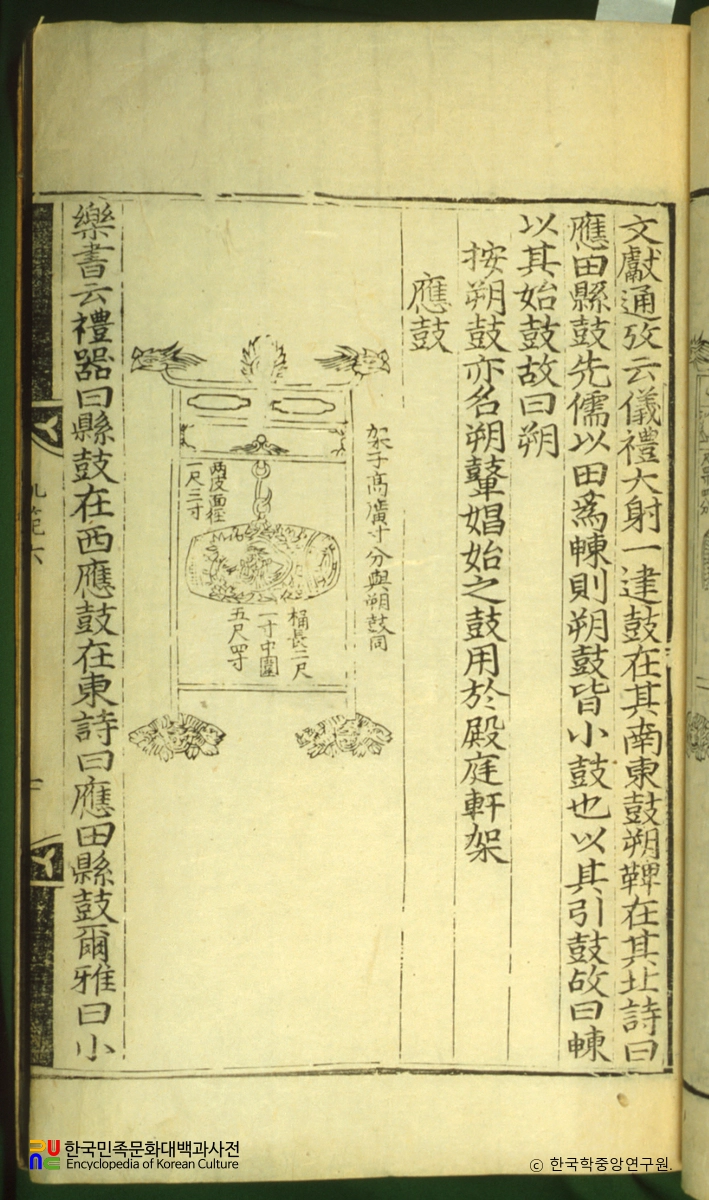 文獻通攷云儀禮大射一建鼓在其南東鼓朔鞞在其北詩曰
應田縣鼓先儒以田爲朄則朔鼓皆小鼓也以其引鼓故曰朄
以其始鼓故曰朔
按朔鼓亦名朔鼙娼始之鼓用於殿庭軒架
應鼓
架子高廣寸分與朔鼓同
兩皮面徑
一尺三寸
桶長二尺
一寸中圍
五尺四寸
樂書云禮器曰縣鼓在西應鼓在東詩曰應田縣鼓爾雅曰小
範六
한국민족문화대백과사전
Encyclopedia of Korean Culture
© 한국학중앙연구원